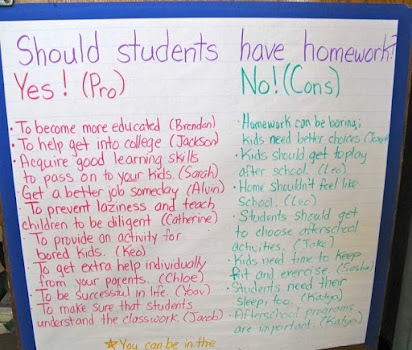 Should students have homework?
Yes! (Pro)
· To become more educated (Brendan)
· To help get into college (Jackson)
· Acquire good learning skills
to pass on to your kids. (Sarah)
Get a better job someday (Alvin)
· To prevent laziness and teach
children to be diligent (Catherine)
· To provide an activity for
bored kids. (Keo)
· To get extra help individually
from your parents. (Chloe)
· To be successful in life. (Yoav)
· To make sure that students
understand the classwork. (Jacob)
No! (Cons)
· Homework can be boring;
kids need better choices
· Kids should get to play
after school. (Leo)
· Home shouldn't feel like
school. (Leo)
· Students should get
to choose afterschool
activities. (Jake)
· Kids need time to keep
fit and exercise. (Sasha)
· Students need their
sleep, too. (Katya)
· Afterschool programs
are important. (Katya)
You can be in the